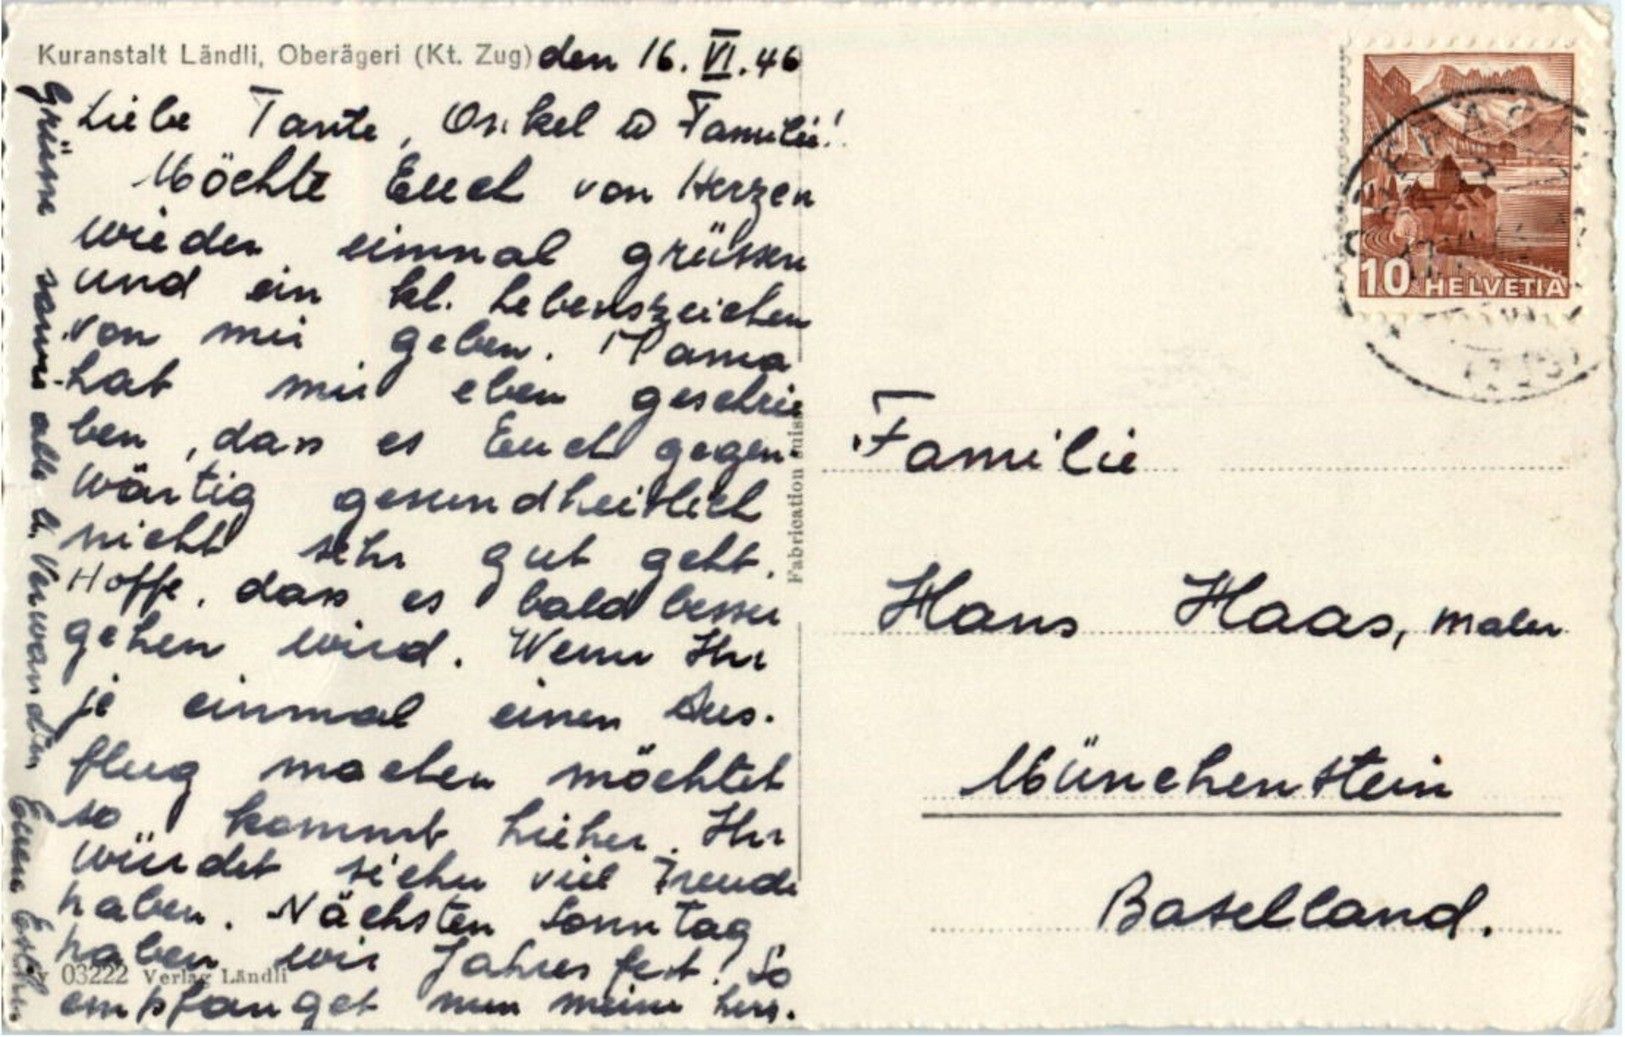 Kuranstalt Ländli, Oberägeri (Kt. Zug) den 16. VI. 46
Liebe Tante, Onkel u Familie!
Möchte Euch von Herzen
wieder einmal grüssen
und ein kl. Lebenszeichen
von mir geben. Mama
hat mir eben geschrie
ben, dass es Euch gegen-
wärtig gesundheitlich
nicht sehr gut geht.
Hoffe, dass es bald besser
gehen wird. Wenn Ihr
je einmal einen Aus-
flug machen möchtet
so kommt hieher. Ihr
würdet sicher viel Freude
haben. Nächsten Sonntag
haben wir Jahresfest! So
empfanget nun meine herz.
Grüsse sowie alle l. Verwandten Eure Esther
03222 Verlag Ländli
Fabrication suisse
10 HELVETIA
Familie
Hans Haas, maler
Münchenstein
Baselland.